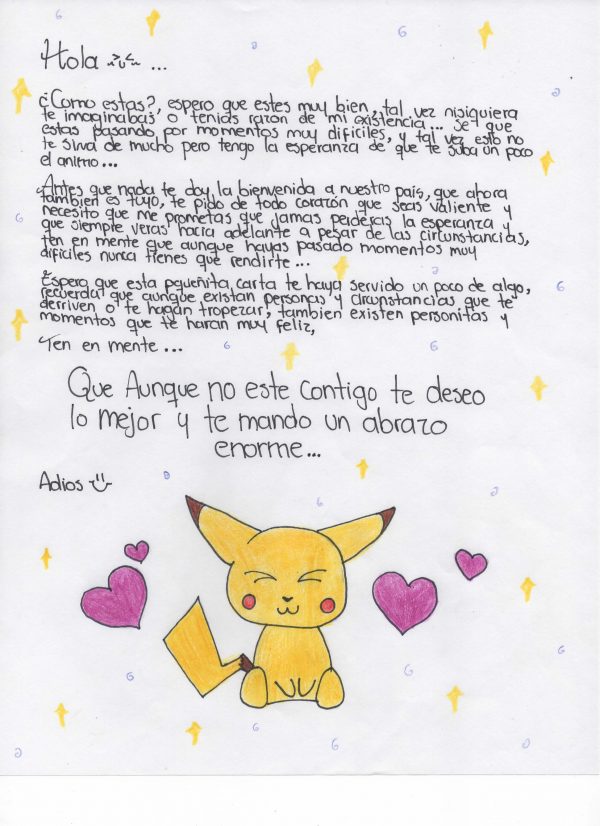 Hola ...
¿Como estas?, espero que estes muy bien, tal vez nisiquiera
te imaginabas o tenias razon de mi existencia... se que
estas pasando por momentos muy dificiles, y tal vez esto no
te sirva de mucho pero tengo la esperanza de que te suba un poco
el animo...
Antes que nada te doy la bienvenida a nuestro pais, que ahora
tambien es tuyo, te pido de todo corazón que seas valiente y
necesito que me prometas que jamas perderas la esperanza y
que siempre veras hacia adelante a pesar de las circunstancias,
ten en mente que aunque hayas pasado momentos muy
dificiles nunca tienes que rendirte...
Espero que esta pqueñita carta te haya servido un poco de algo,
recuerda que aunque existan personas y circunstancias que te
derriven o te hagan tropezar, tambien existen personitas y
momentos que te haran muy feliz,
Ten en mente...
Que Aunque no este contigo te deseo
lo mejor y te mando un abrazo
enorme...
Adios